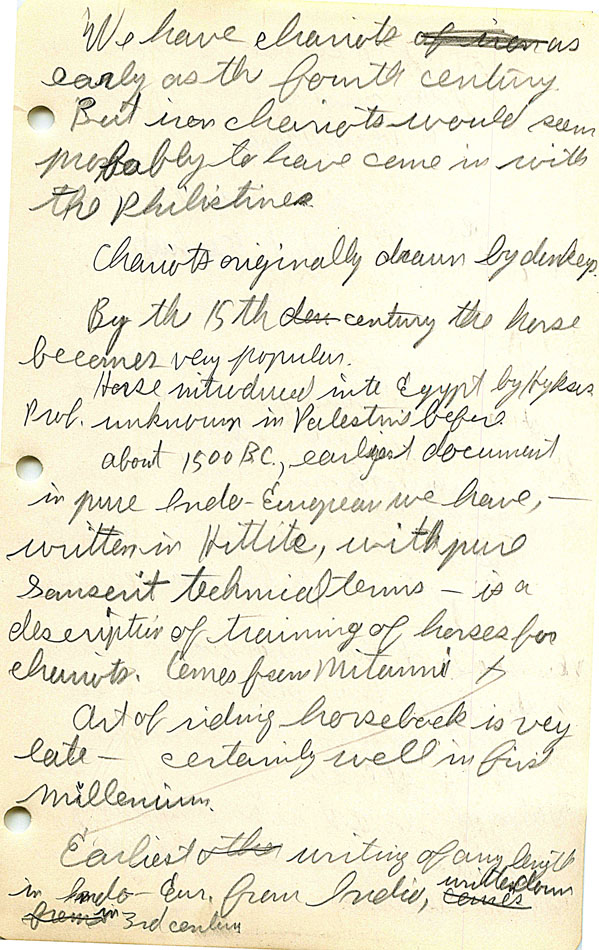 We have chariots of iron as
early as th fourth century.
But iron chariots would seem
probably to have come in with
the Philistines.
Chariots originally drawn by donkeys.
By th 15th century the horse
becomes very popular.
Horse introduced into Egypt by Hyksos
Prof. unknown in Palestine before
about 1500 B.C., earliest document
in pure Indo-European we have, —
written in Hittite, with pure
Sanscrit technical terms — is a
description of training of horses for
chariots. Comes from Mitanni x
Art of riding horseback is very
late — certainly well in first
millenium.
Earliest the writing of any length
in Indo-Eur. from India, written down comes
from in 3rd century